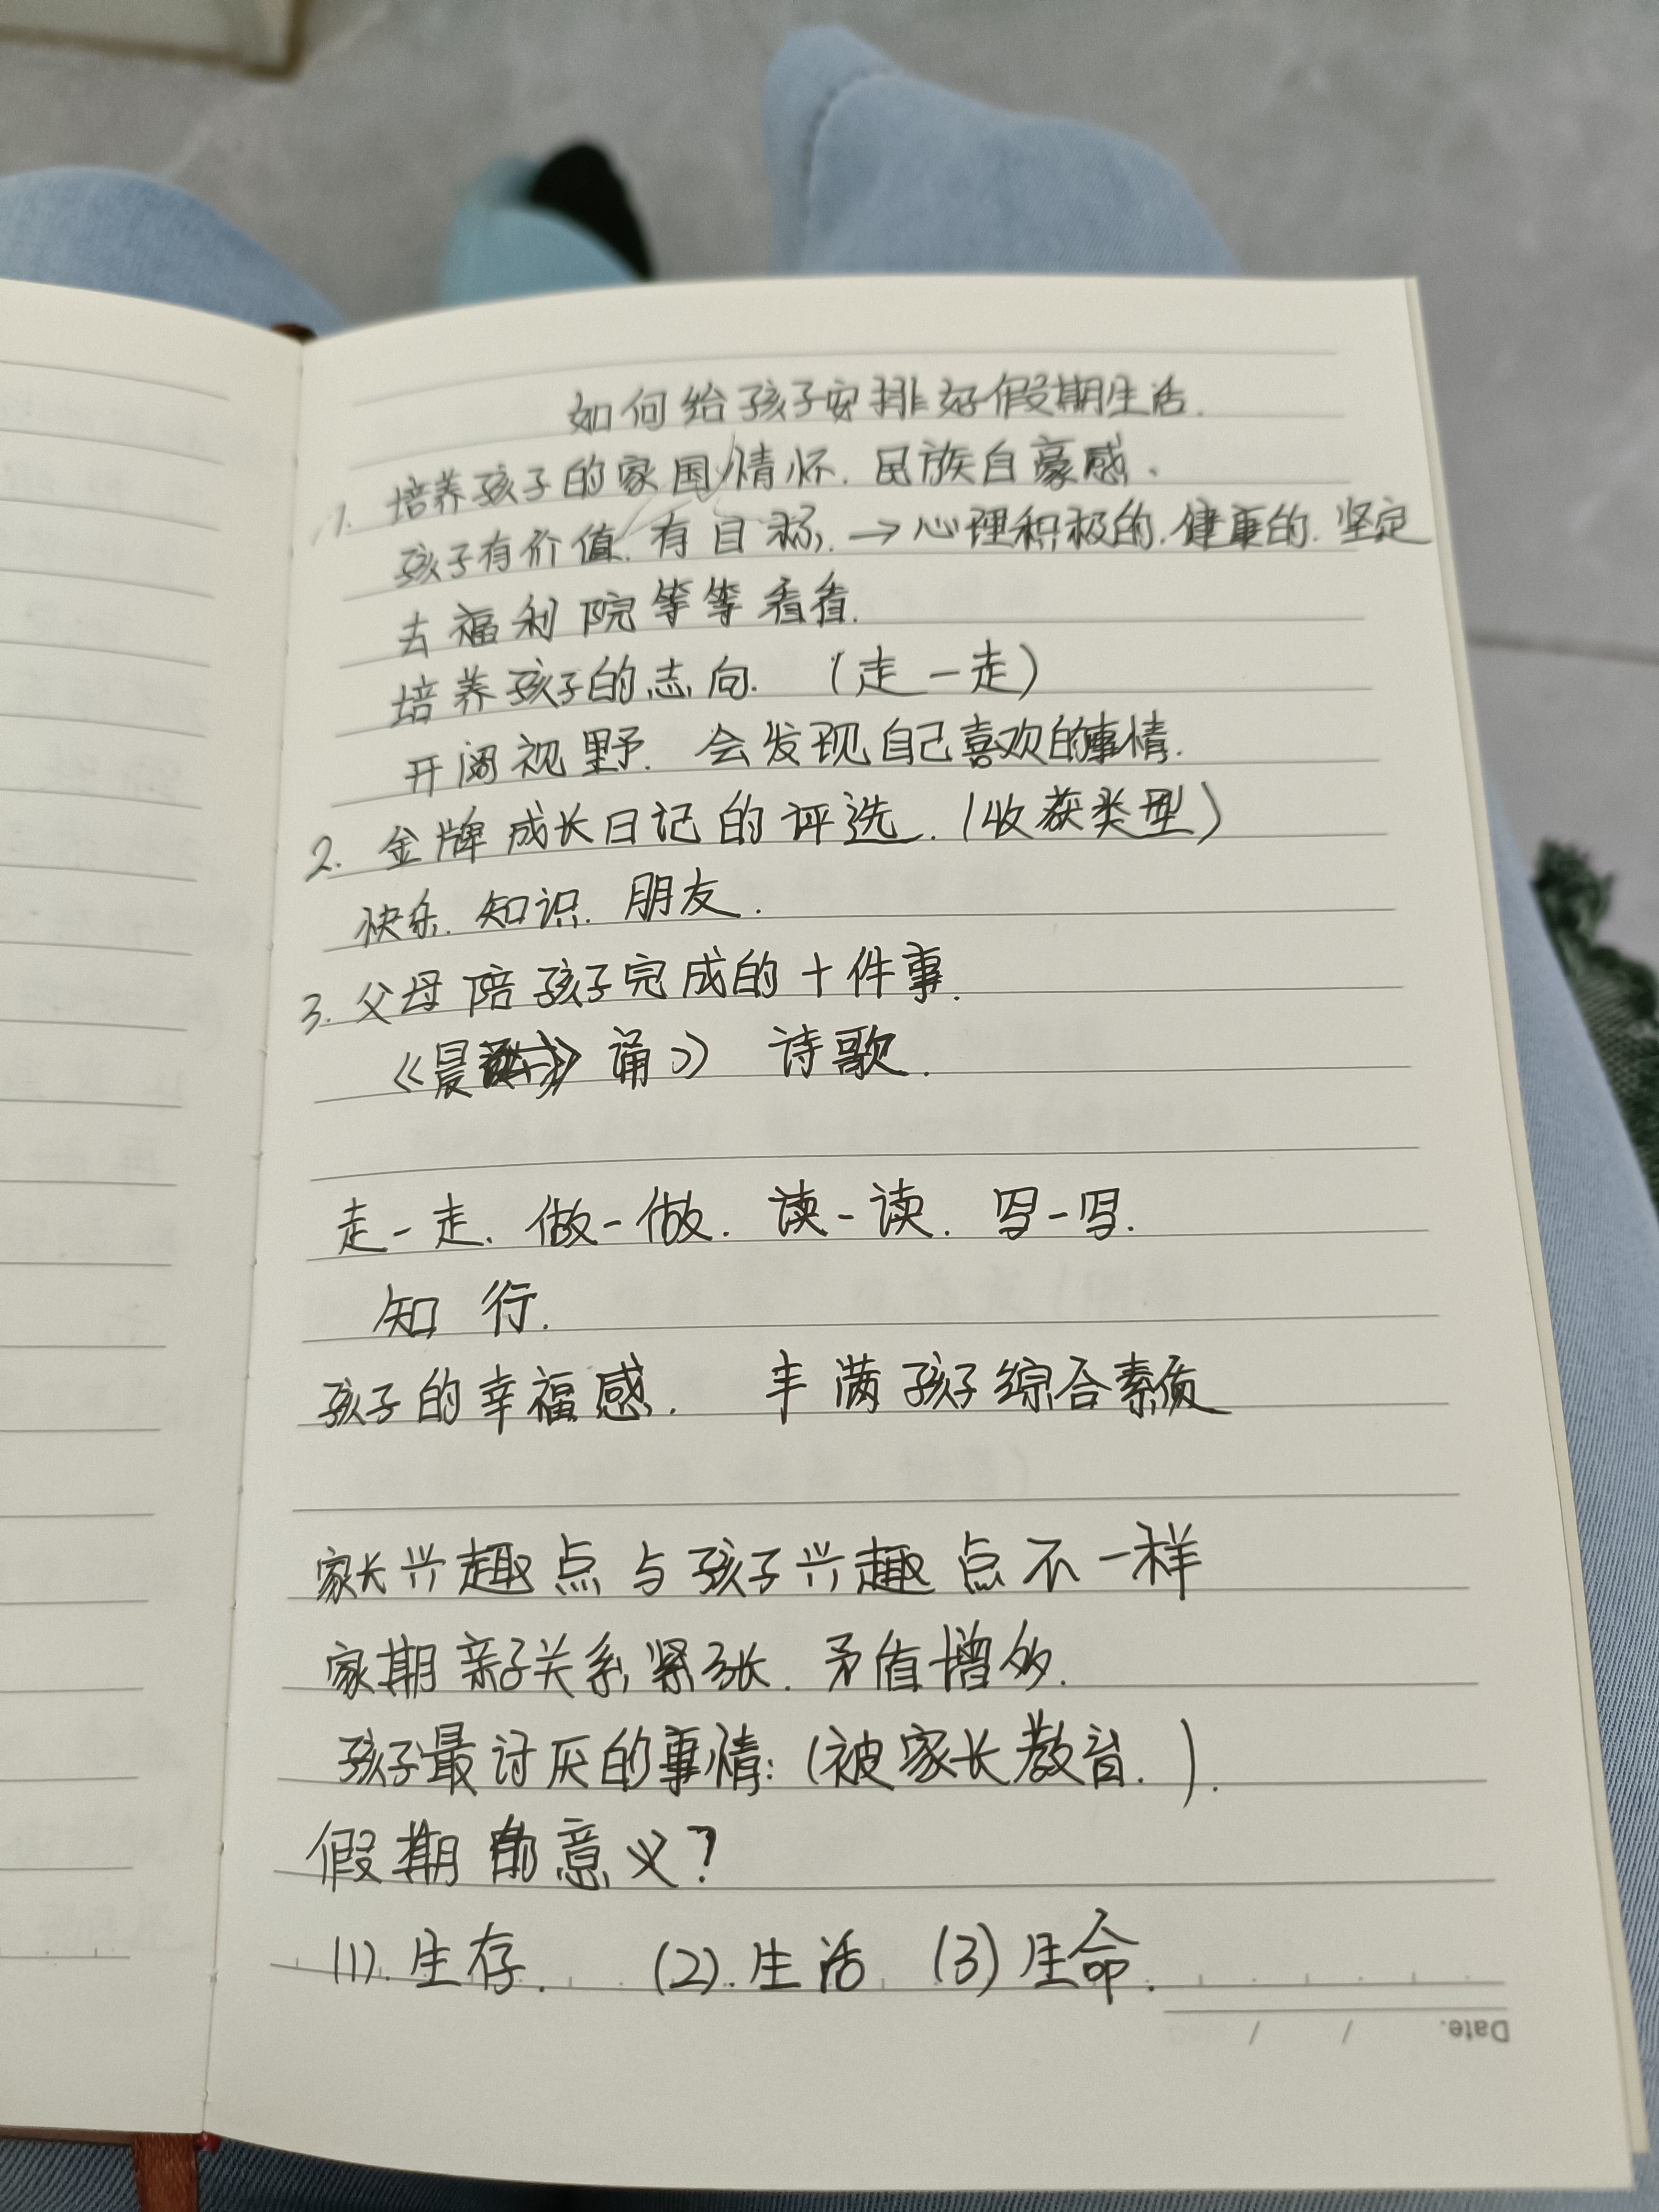 如何给孩子安排好假期生活.
1. 培养孩子的家国情怀. 民族自豪感、
孩子有价值. 有目标. → 心理积极的. 健康的. 坚定
去福利院等等看看.
培养孩子的志向. (走一走)
开阔视野. 会发现自己喜欢的事情.
2. 金牌成长日记的评选. (收获类型)
快乐. 知识. 朋友.
3. 父母陪孩子完成的十件事.
《晨诵》 诗歌.
走一走、做一做. 读一读. 写一写.
知 行.
孩子的幸福感. 丰满孩子综合素质
家长兴趣点与孩子兴趣点不一样
家期亲子关系紧张. 矛盾增多.
孩子最讨厌的事情: (被家长教育. ).
假期的意义?
(1). 生存. (2). 生活 (3) 生命.
Date. / /